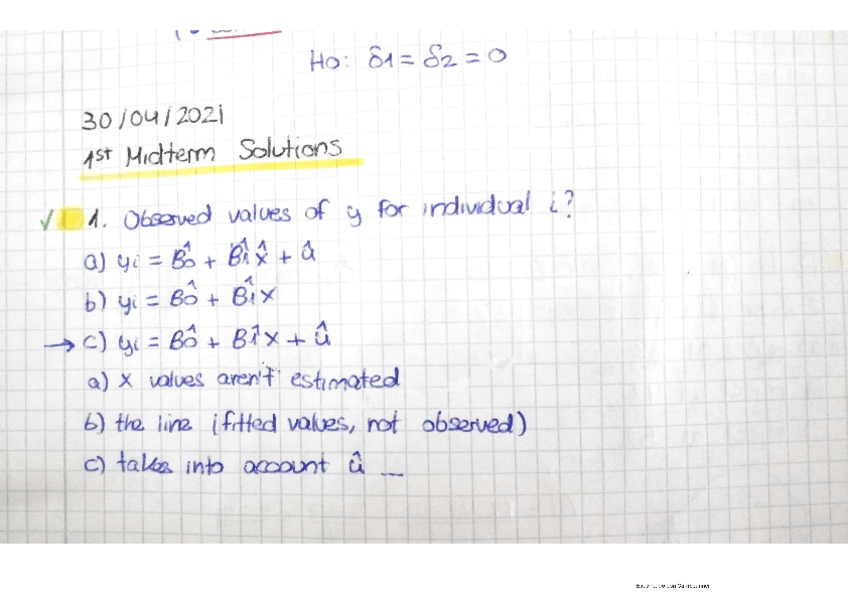 H0: δ1 = δ2 = 0
30/04/2021
1st Midterm Solutions
√ 1. Observed values of y for individual i?
a) yi = B̂0 + B̂1x̂ + û
b) yi = B̂0 + B̂1x
→ c) yi = B̂0 + B̂1x + û
a) x values aren't estimated
b) the line (fitted values, not observed)
c) takes into account û __